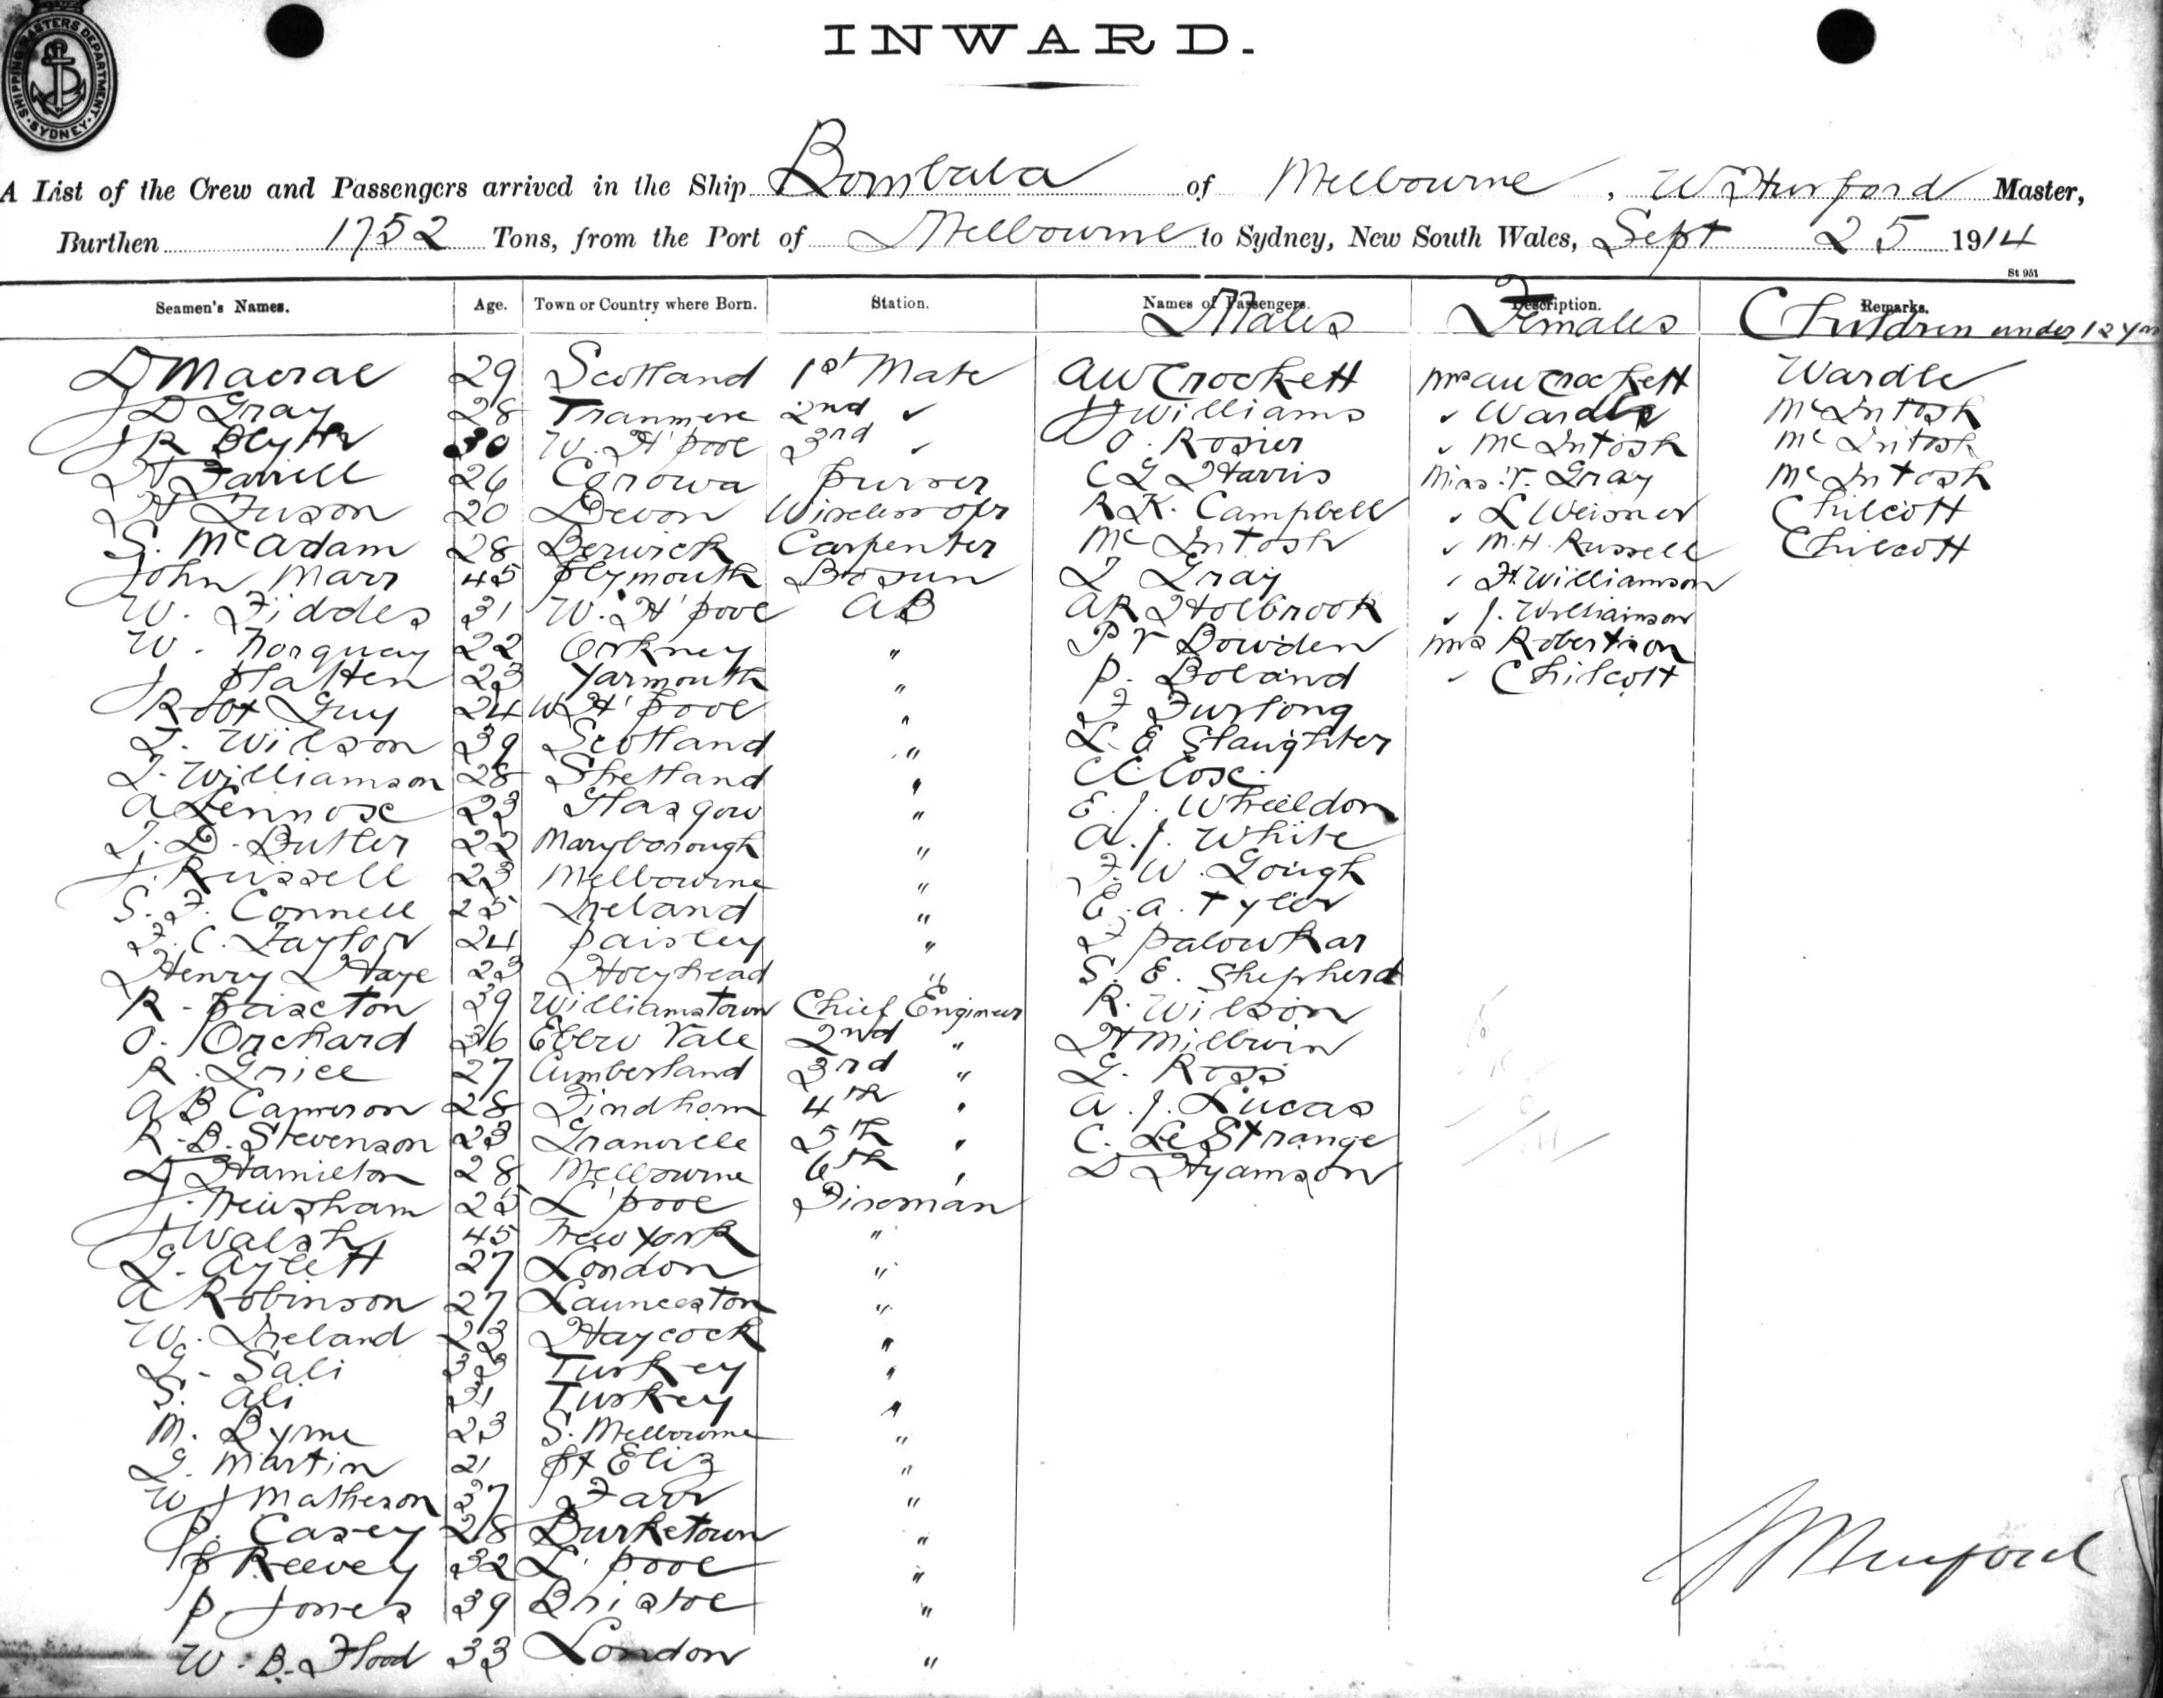 SHIPPING MASTERS DEPARTMENT. SYDNEY
INWARD.
A List of the Crew and Passengers arrived in the Ship Bombala of Melbourne, W Hurford Master,
Burthen 1752 Tons, from the Port of Melbourne to Sydney, New South Wales, Sept 25 1914
St 951
Seamen's Names. Age. Town or Country where Born. Station. Names of Passengers. Description. Remarks.
Males Females Children under 12 yrs
D Macrae 29 Scotland 1st Mate A W Crockett Mrs A W Crockett Wardle
J D Gray 28 Tranmere 2nd " J J Williams " Wardle McIntosh
J R Blyth 30 W. H'pool 3rd " O. Rosier " McIntosh McIntosh
H Farrell 26 Corowa Purser C G Harris Miss V. Gray McIntosh
H Fuson 20 Devon Wireless opr R K. Campbell " L Weisner Chilcott
S. McAdam 28 Berwick Carpenter McIntosh " M. H. Russell Chilcott
John Marr 45 Plymouth Bosun T Gray " H. Williamson
W. Fiddes 31 W. H'pool AB A R Holbrook " J. Williamson
W. Norquay 22 Orkney " P V Bowden Mrs Robertson
J Platten 23 Yarmouth " P. Boland " Chilcott
Robt Guy 24 W H'pool " F Furlong
T. Wilson 39 Scotland " L. E Slaughter
T. Williamson 28 Shetland " C C Cox
A Lennox 23 Glasgow " E. J. Wheeldon
T. D. Butler 22 Maryborough " A. J. White
J. Russell 23 Melbourne " F. W. Gough
S. F. Connell 25 Ireland " E. A. Tyler
F. C. Taylor 24 Paisley " F Palowkar
Henry Haye 23 Holyhead " S. E. Shepherd
R. Paxton 39 Williamstown Chief Engineer R. Wilson
O. Orchard 36 Ebbw Vale 2nd " H Millwin
R. Grice 27 Cumberland 3rd " G. Ross
A B Cameron 28 Findhorn 4th " A. J. Lucas
R. B. Stevenson 23 Granville 5th " C. Le Strange
D Hamilton 28 Melbourne 6th " D Hyamson
J. Newsham 25 L'pool Fireman
J Walsh 45 New York "
G. Aylett 27 London "
A Robinson 27 Launceston "
W. Ireland 23 Haycock "
G. Sali 33 Turkey "
S. Ali 31 Turkey "
M. Byrne 23 S. Melbourne "
G. Martin 21 Pt Eliz "
W J Matheson 37 Farr "
P. Casey 28 Burketown "
P Reevey 32 L'pool "
P Jones 39 Bristol "
W. B. Flood 33 London "